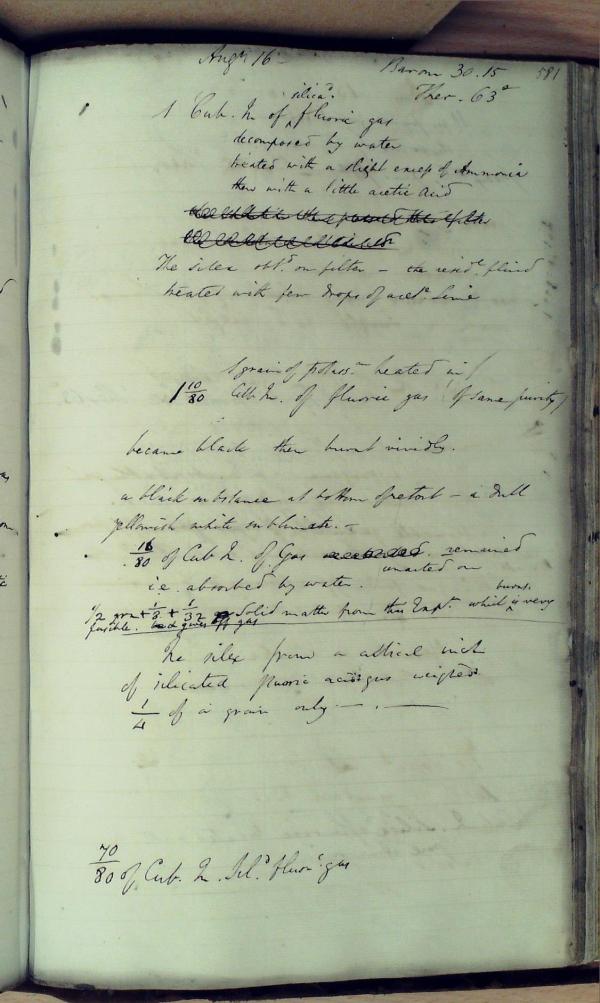 Augst 16
Barom 30.15 581
Ther. 63°
silica.d
1 Cub. In of fluoric gas
decomposed by water
treated with a slight excess of Ammonia
then with a little acetic acid
The silex obt.d on filter – the resid.l fluid
treated with few drops of acet.e Lime
1 grain of potass.m heated in
1 10/80 Cub. In. of fluoric gas (of same purity)
became black then burnt vividly.
a black substance at bottom of retort – a dull
yellowish white sublimate. –
16/80 of Cub In. of Gas remained
unacted on
i.e. absorbed by water.
burnt
1/2 grn + 1/8 + 1/32 of Solid matter from this Expt. which is very
fusible. gas
The silex from a cubical inch
of silicated fluoric acid gas weighed
1/4 of a grain only –. –
70/80 of Cub. In. Sil.d fluor.c gas